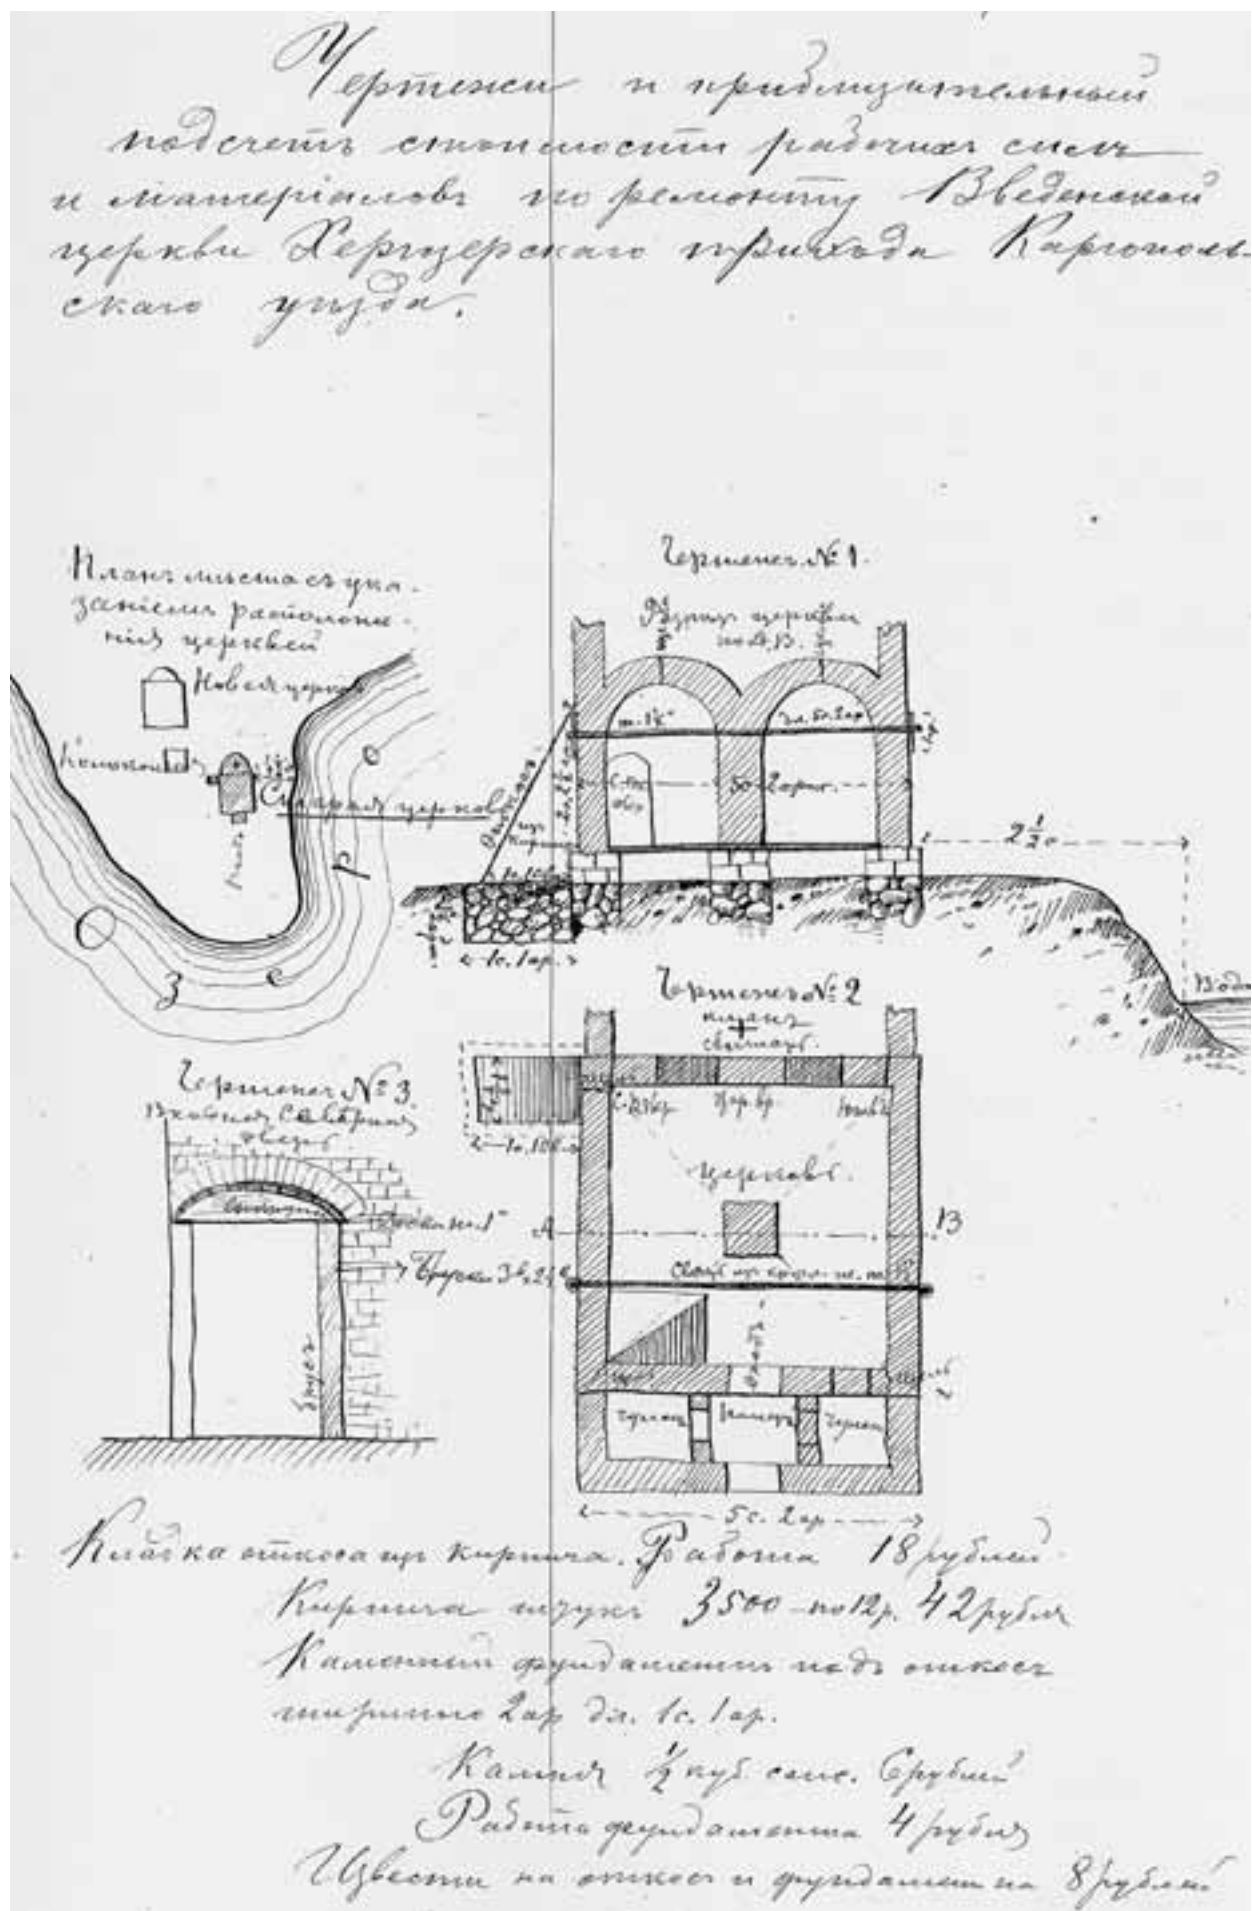 Чертежи и приблизительный
подсчетъ стоимости рабочихъ силъ
и матеріаловъ по ремонту Введенской
церкви Хергозерскаго прихода Каргополь-
скаго уѣзда.
Планъ мѣста съ ука-
заніемъ расположе-
нія церквей
Новая церковь
Колокольня
Старая церковь
О
з
е
р
о
Чертежъ № 1.
Разрѣзъ церкви
по А.В.
дл. 5с. 2ар
5с-2арш.
Откосъ
изъ
1с. 1ар.
2 1/2 с
Вода
Чертежъ № 2
планъ
Чертежъ № 3.
Входная Сѣверная
дверь
Доска 1"
Бруски
брусъ
Церковь.
А
В
Связь изъ
Входъ
5с. 2ар
Кладка откоса изъ кирпича. Работа 18 рублей
Кирпича штукъ 3500 - по 12р. 42 рубля
Каменный фундаментъ подъ откосъ
шириною 2ар дл. 1с. 1ар.
Камня 1/2 куб. саж. 6 рублей
Работа фундамента 4 рубля
Извести на откосъ и фундаментъ 8 рублей